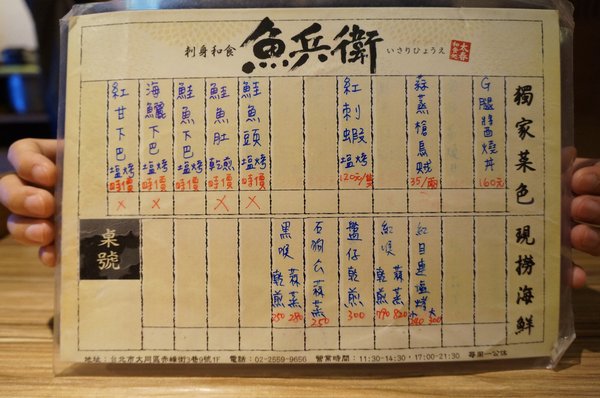 刺身和食 魚兵衛 いさりひょうえ
獨家菜色 現撈海鮮
G腿醬西燒丼 160元
蒜蒸槍烏賊 35/兩
紅刺蝦塩烤 120元/隻
鮭魚頭塩烤 時價 X
鮭魚肚乾煎 時價 X
鮭魚下巴塩烤 時價
海鱺下巴塩烤 時價 X
紅甘下巴塩烤 時價 X
紅目連塩烤 小240 大300
紅喉 乾煎 790 蒜蒸 820
盤仔乾煎 300
石狗公蒜蒸 250
黑喉 乾煎 250 蒜蒸 280
桌號
地址：台北市大同區赤峰街3巷9號1F 電話：02-2559-9656 營業時間：11:30-14:30，17:00-21:30 每周一公休